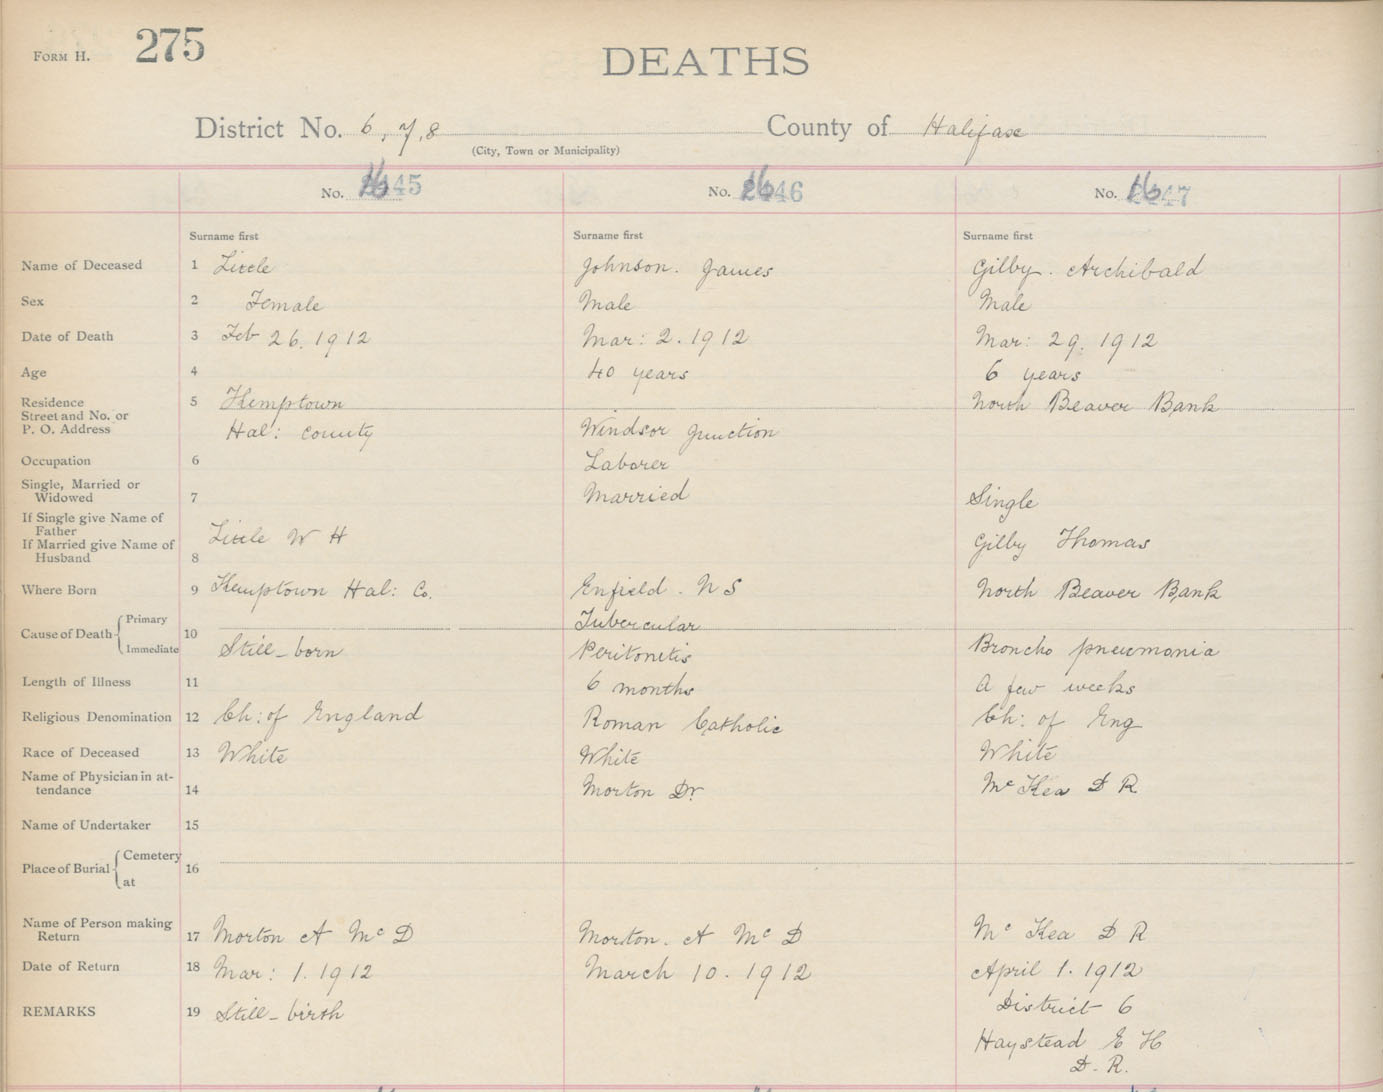 FORM H. 275
DEATHS
District No. 6, 7, 8 County of Halifax
(City, Town or Municipality)
No. 1645 No. 1646 No. 1647
Surname first Surname first Surname first
Name of Deceased 1 Little Johnson. James Gilby. Archibald
Sex 2 Female Male Male
Date of Death 3 Feb 26. 1912 Mar: 2. 1912 Mar: 29. 1912
Age 4 40 years 6 years
Residence 5 Kemptown North Beaver Bank
Street and No. or
P. O. Address Hal: County Windsor Junction
Occupation 6 Laborer
Single, Married or
Widowed 7 Married Single
If Single give Name of
Father
If Married give Name of Little W H Gilby Thomas
Husband 8
Where Born 9 Kemptown Hal: Co. Enfield. N S North Beaver Bank
Primary Tubercular
Cause of Death 10
Immediate Still-born Peritonitis Broncho pneumonia
Length of Illness 11 6 months A few weeks
Religious Denomination 12 Ch: of England Roman Catholic Ch: of Eng
Race of Deceased 13 White White White
Name of Physician in at-
tendance 14 Morton Dr. Mc Kea D R
Name of Undertaker 15
Cemetery
Place of Burial 16
at
Name of Person making
Return 17 Morton A Mc D Morton. A Mc D Mc Kea D R
Date of Return 18 Mar: 1. 1912 March 10. 1912 April 1. 1912
REMARKS 19 Still-birth District 6
Haystead E H
D. R.